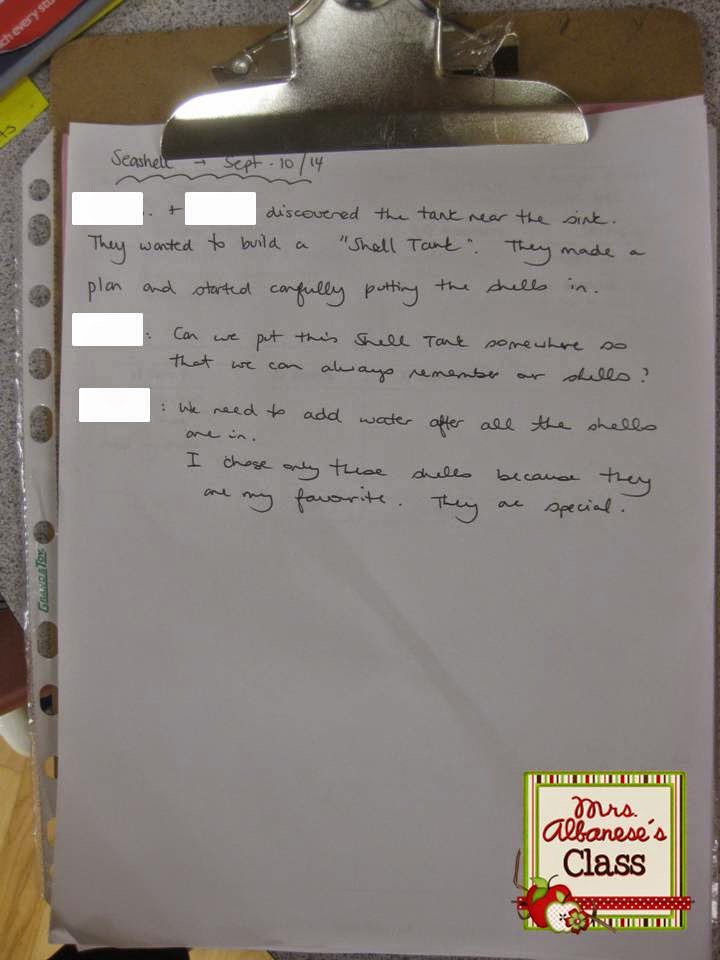 ach every stu
Seashell → Sept. 10/14
.. + discovered the tank near the sink.
They wanted to build a "Shell Tank". They made a
plan and started carfully putting the shells in.
: Can we put this Shell Tank somewhere so
that we can always remember our shells?
: We need to add water after all the shells
are in.
I chose only these shells because they
are my favourite. They are special.
GRAND & TOY
Mrs.
Albanese's
Class